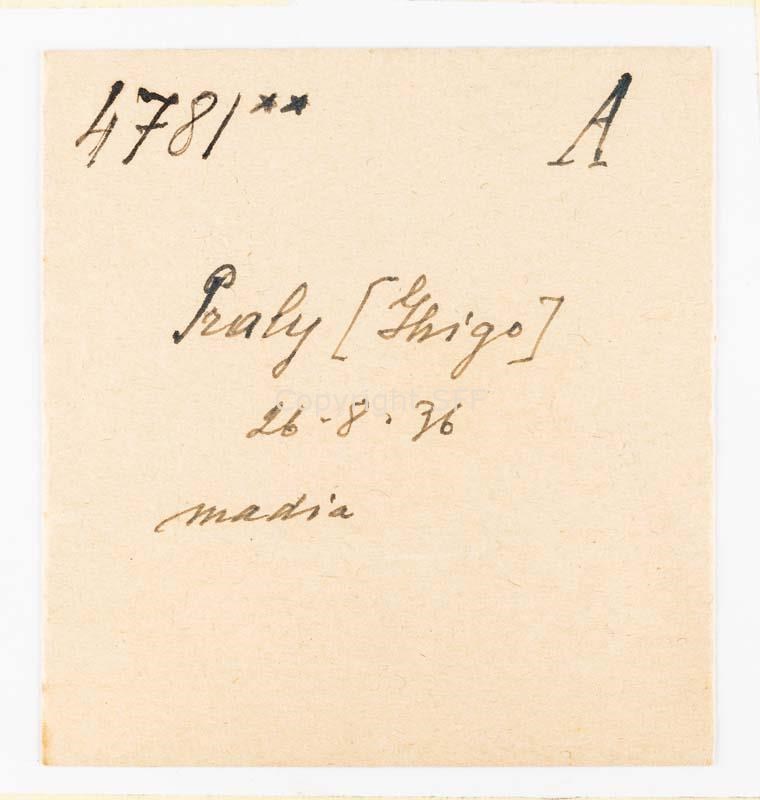 4781** A
Praly [Ghigo]
Copyright SFF
26-8.36
madia